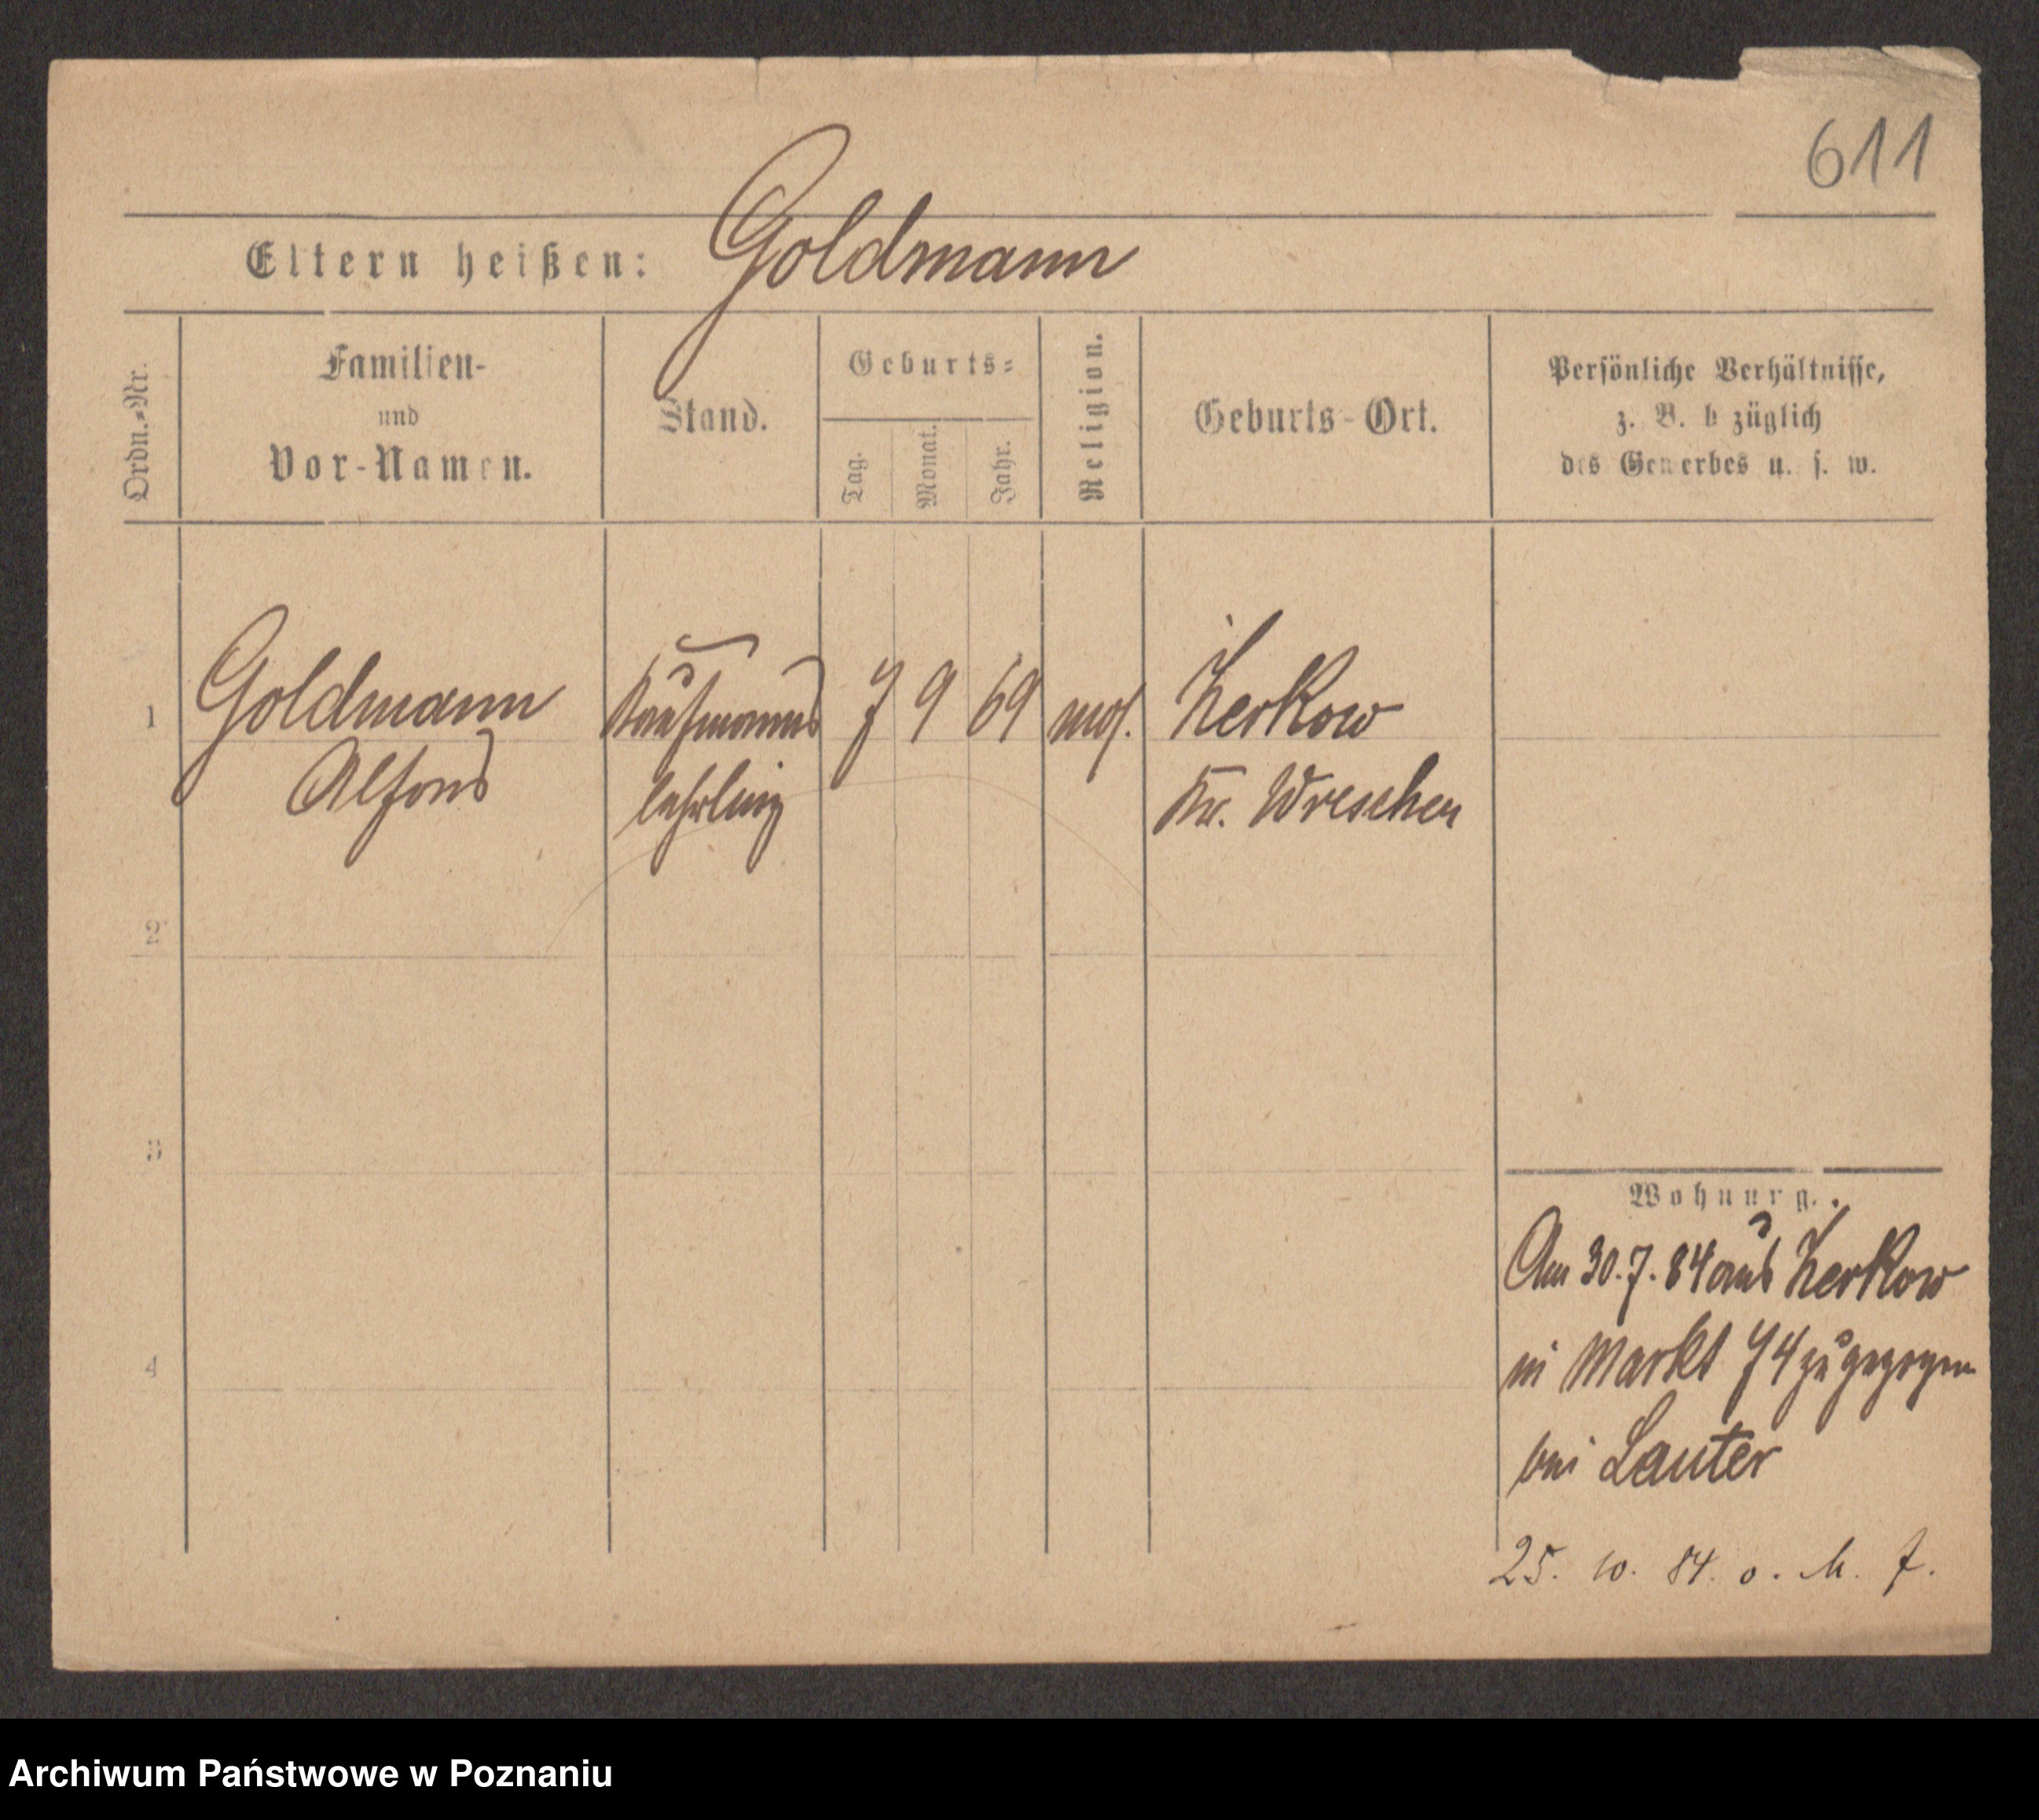 611
Eltern heißen: Goldmann
Ordn.=Nr.
Familien-
und
Vor-Namen.
Stand.
Geburts=
Tag.
Monat.
Jahr.
Religion.
Geburts-Ort.
Persönliche Verhältnisse,
z. B. b züglich
des Gewerbes u. s. w.
1 Goldmann Kaufmanns 7 9 69 mos. Zerkow
Alfons lehrling Kr. Wreschen
2
3
4
Wohnung.
Am 30.7.84 aus Zerkow
in Markt 74 zugezogen
bei Lauter
25. 10. 84. o. M. f.
Archiwum Państwowe w Poznaniu